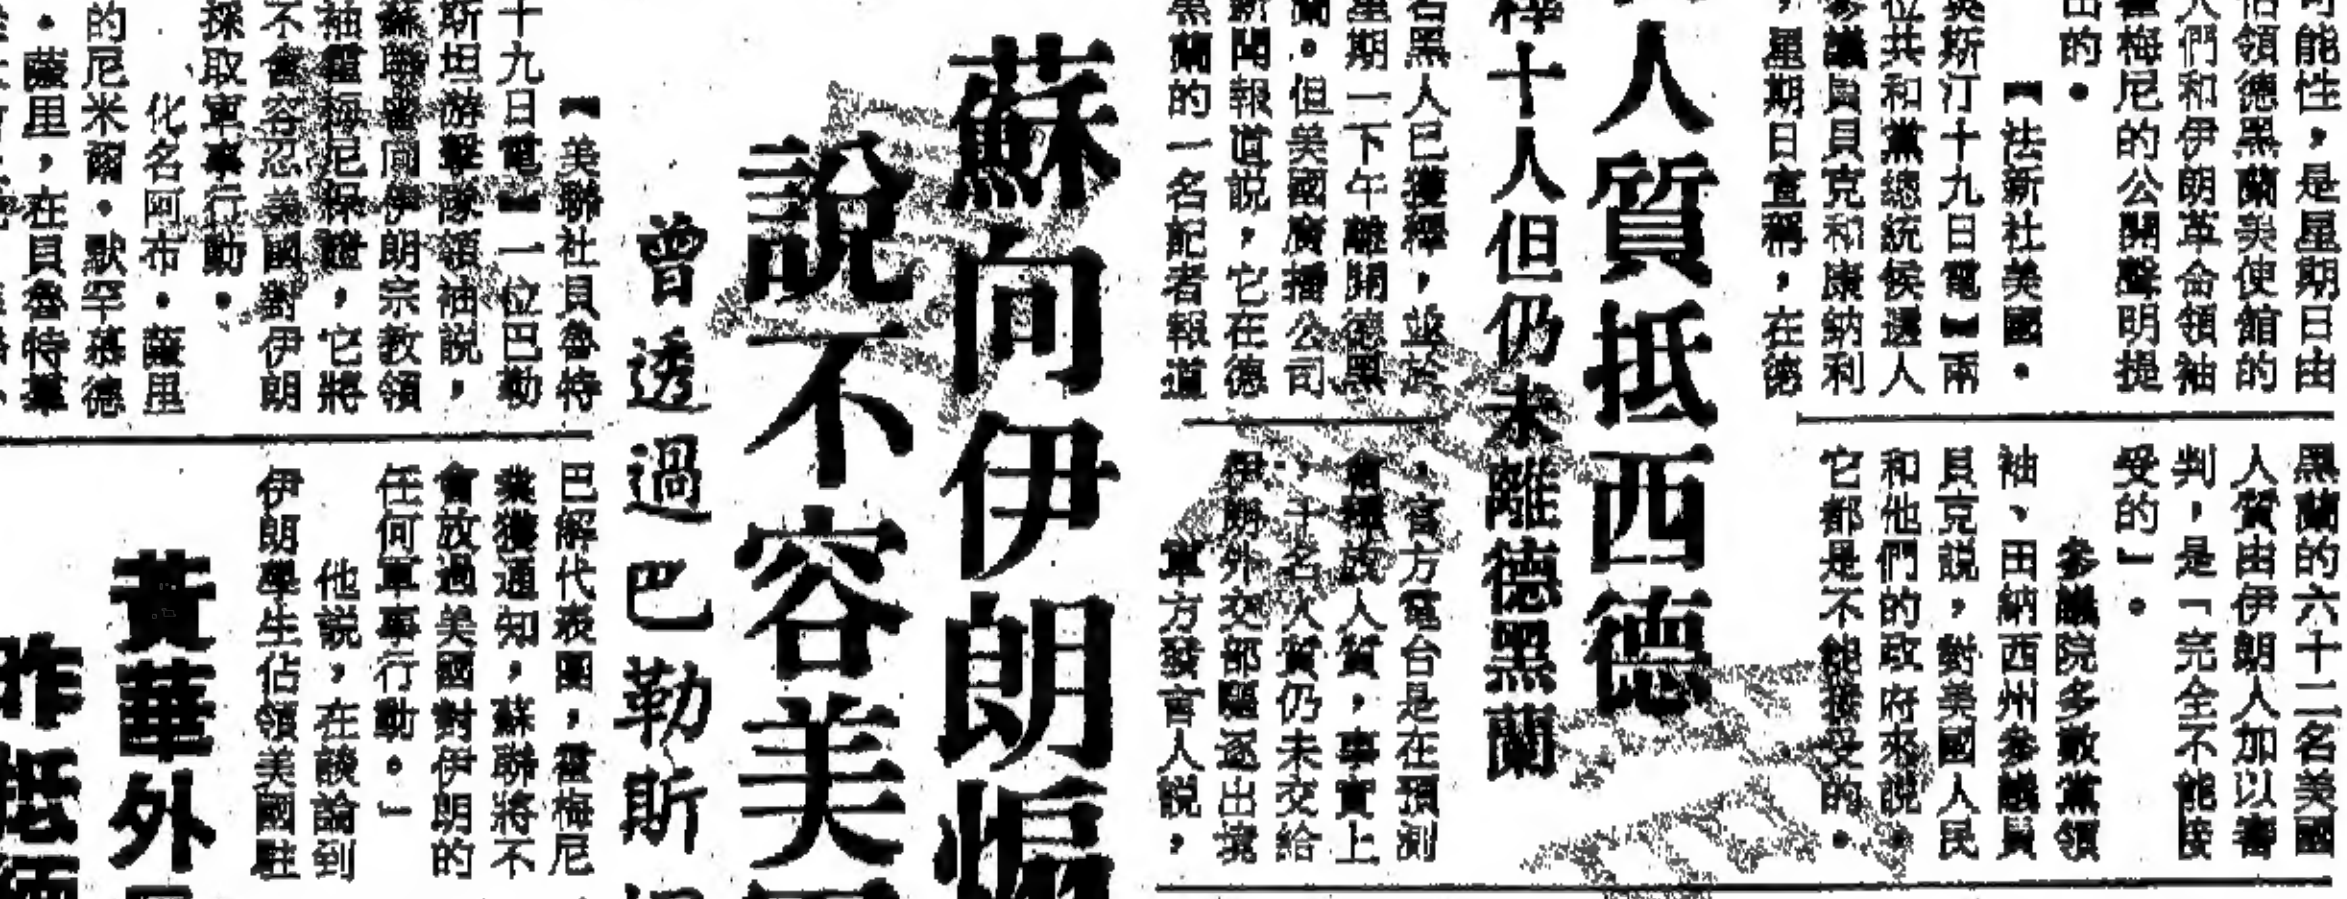 人質抵西德
釋十人但仍未離德黑蘭
能性，是星期日由
佔領德黑蘭美使館的
人們和伊朗革命領袖
霍梅尼的公開聲明提
出的。
【法新社美國．
奧斯汀十九日電】兩
位共和黨總統候選人
參議員貝克和康納利
，星期日宣稱，在德
黑蘭的六十二名美國
人質由伊朗人加以審
判，是「完全不能接
受的」。
參議院多數黨領
袖、田納西州參議員
貝克說，對美國人民
和他們的政府來說，
它都是不能接受的。
名黑人已獲釋，並於
星期一下午離開德黑
蘭。但美國廣播公司
新聞報道說，它在德
黑蘭的一名記者報道
，官方電台是在預測
會釋放人質，事實上
，十名人質仍未交給
伊朗外交部驅逐出境
軍方發言人說，
蘇向伊朗
說不容美
曾透過巴勒斯
【美聯社貝魯特
十九日電】一位巴勒
斯坦游擊隊領袖說，
蘇聯曾向伊朗宗教領
袖霍梅尼保證，它將
不會容忍美國對伊朗
採取軍事行動。
化名阿布．薩里
的尼米爾．默罕慕德
．薩里，在貝魯特舉
巴解代表團，霍梅尼
業獲通知，蘇聯將不
會放過美國對伊朗的
任何軍事行動。」
他說，在談論到
伊朗學生佔領美國駐
黃華外
昨抵